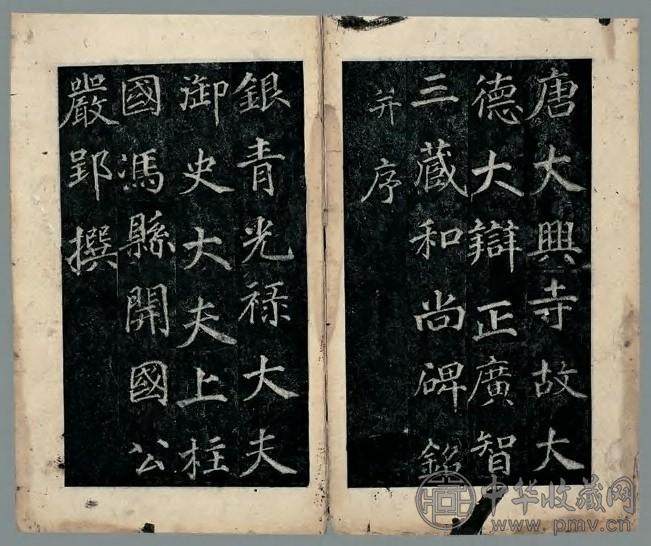 唐大興寺故大
德大辯正廣智
三藏和尚碑銘
并序
銀青光祿大夫
御史大夫上柱
國馮縣開國公
嚴郢撰
中华收藏网
www.pmv.cn